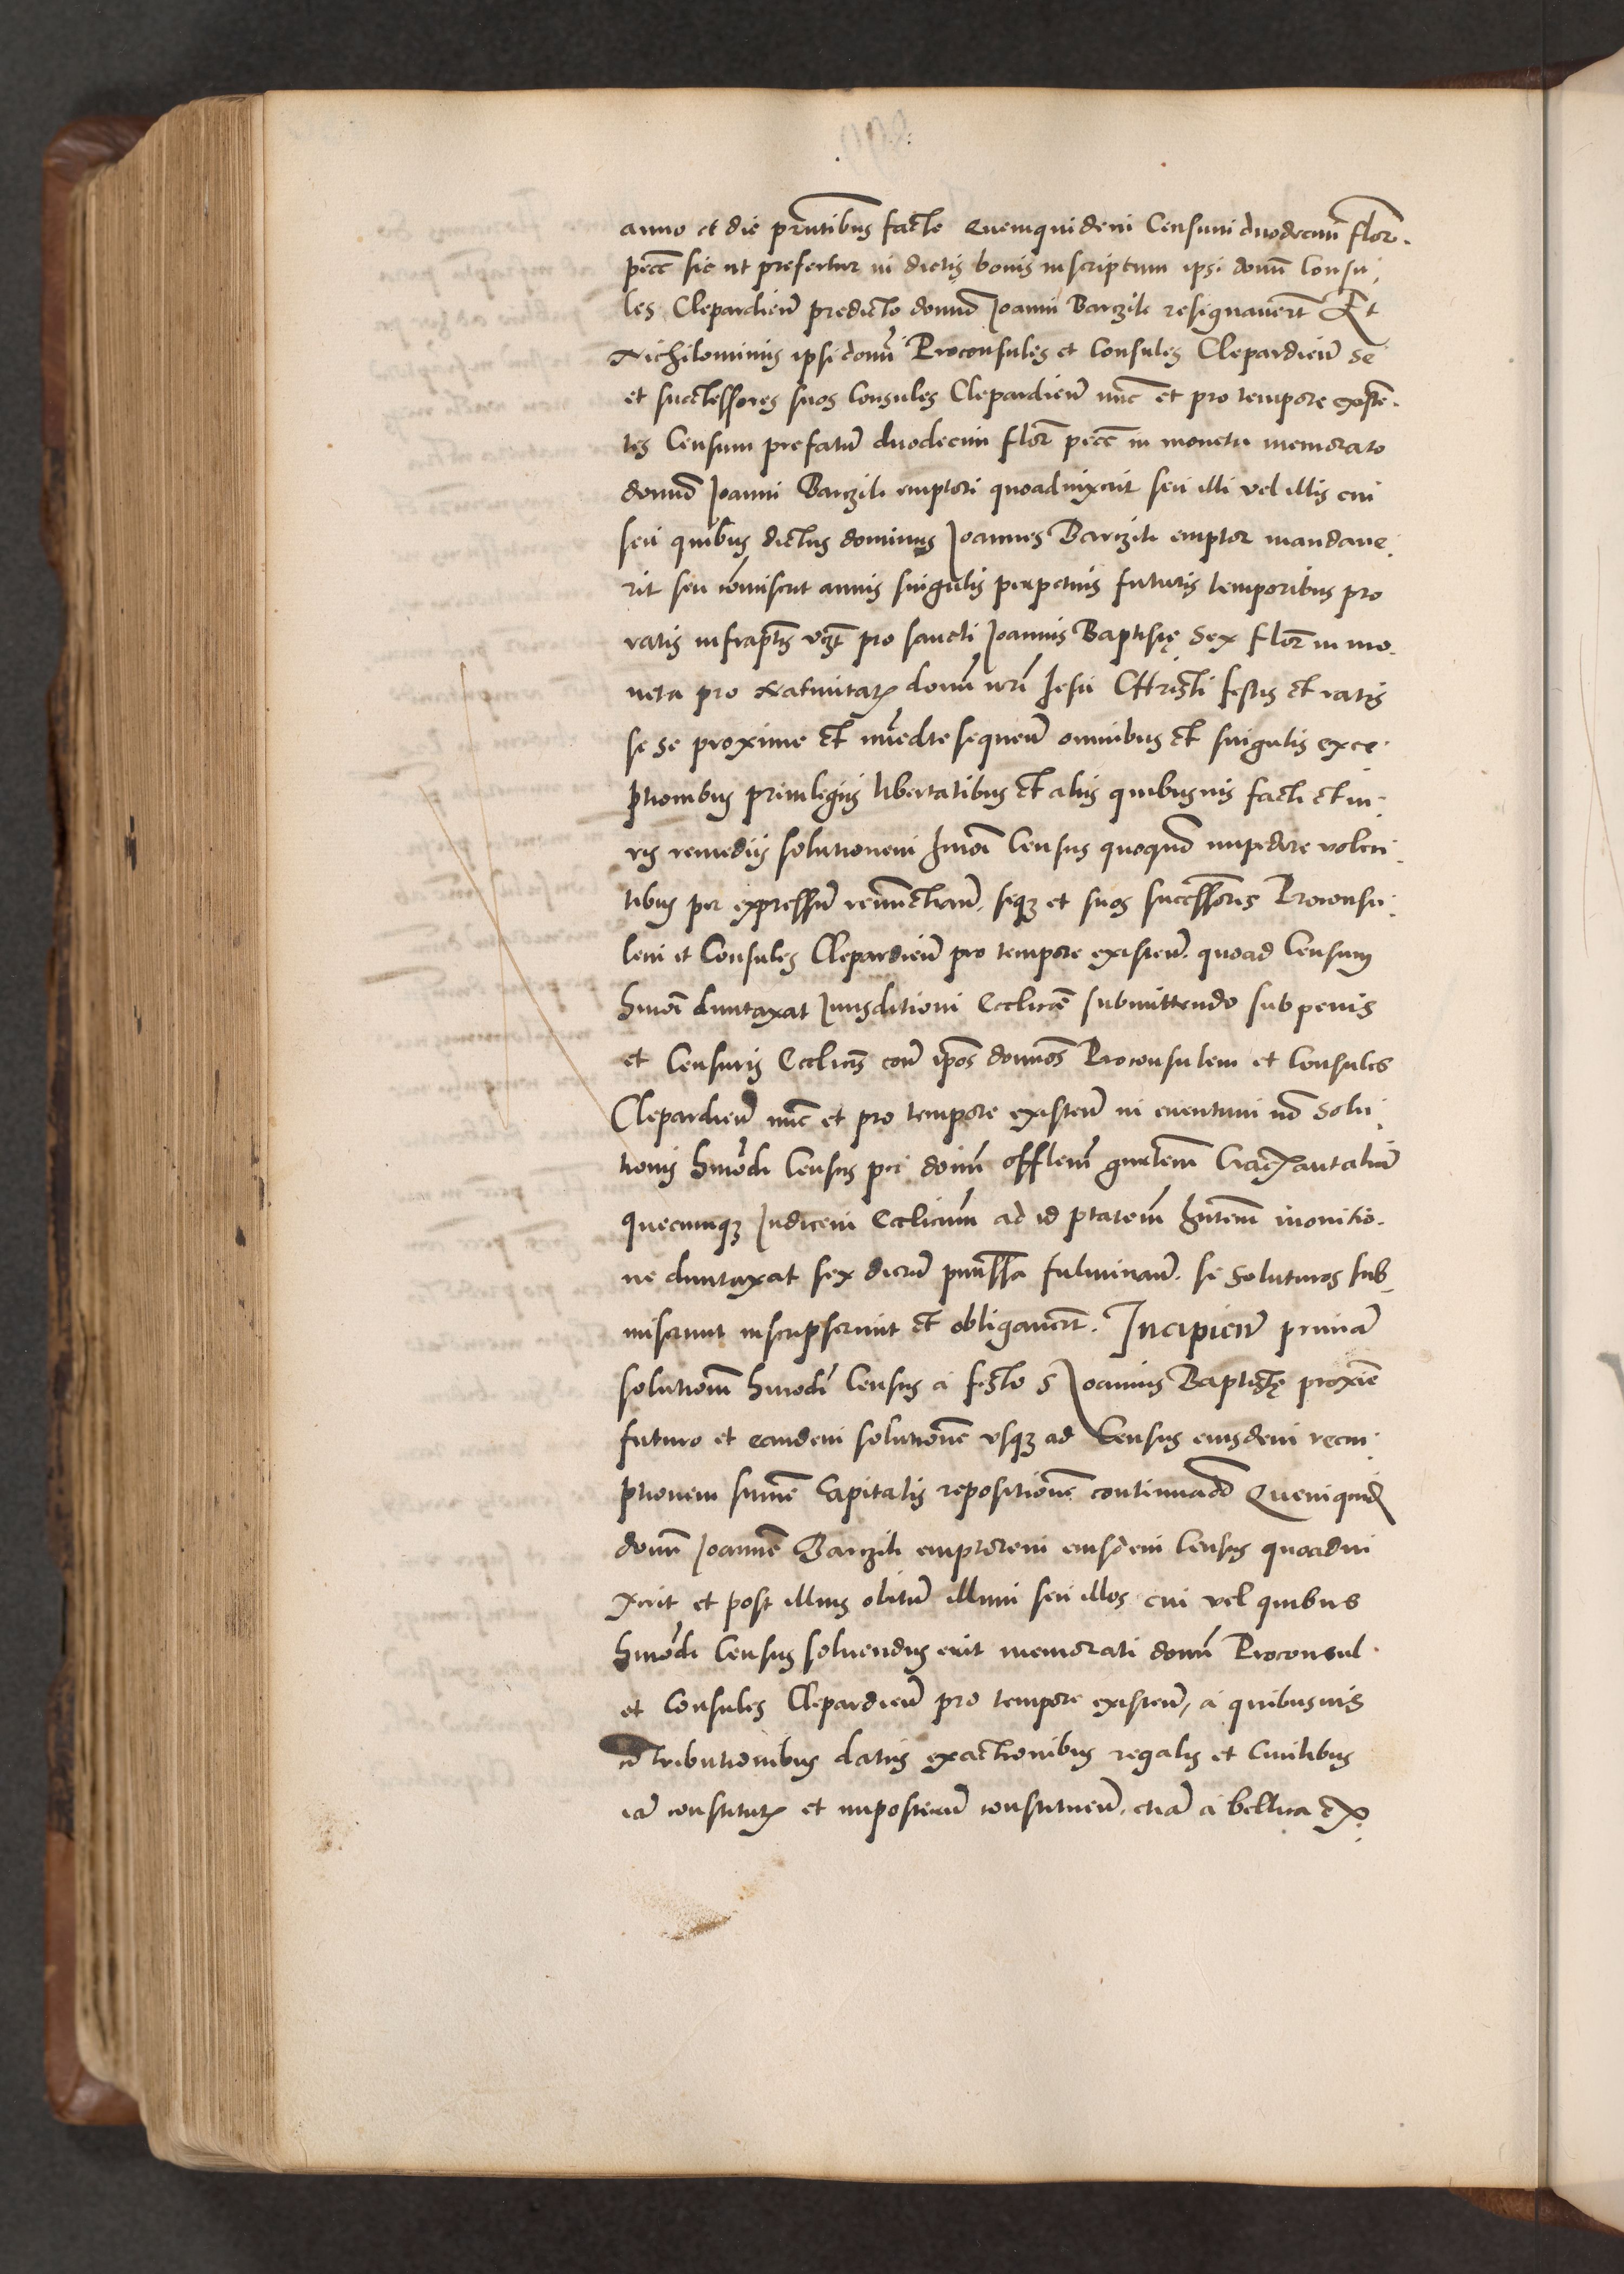 anno et die prntibus facte Quemquidem Censum duodecim flor.
pecc sic ut prefertur in dictis bonis inscriptum ipsi domi Consu
les Clepardien predicto domino Joanni Barczik resignauert Et
Nichilominus ipsi domi Proconsules et Consules Clepardien se
et successores suos Consules Clepardien nunc et pro tempore existe.
tes Censum prefatum duodecim flor pecc in moneta memorato
domino Joanni Barczik emptori quoaduixerit seu illi vel illis cui
seu quibus dictus dominus Joannes Barczik emptor mandaue
rit seu comiserit annis singulis perpetuis futuris temporibus pro
ratis infraptis vczt pro sancti Joannis Baptistę sex flor in mo.
neta pro Natiuitatis domi nri Jesu Christi festis et ratis
se se proxime et imedte sequen omnibus et singulis exce
ptionibus priuilegiis libertatibus et aliis quibusuis facti et iu
ris remediis solutionem hmoi Census quoquomodo impedire volen
tibus per expressum renunctian. seq3 et suos successores Proconsu
lem et Consules Clepardien pro tempore existen. quoad Censum
hmoi duntaxat Jurisditioni Ecclice submittendo sub penis
et Censuris Ecclicis con ipos domos Proconsulem et Consules
Clepardien nunc et pro tempore existen in euentum no solu
tionis hmodi Census per domi offlem gnrlem Crac aut alium
quecumq3 Judicem Ecclicum ad id ptatem hntem monitio.
ne duntaxat sex dierum pmissa fulminan. se soluturos sub
miserunt inscripserunt et obligauert. Incipien primam
solutionem hmodi Census a festo S Joannis Baptistę proxie
futuro et eandem solutionem vsq3 ad Census eiusdem reem
ptionem sume Capitalis repositione continuando Quemquid
dom Joannem Barczik emptorem eiusdem Census quoadui
xerit et post illius obitum illum seu illos cui vel quibus
hmodi Census soluendus erit memorati domi Proconsul
et Consules Clepardien pro tempore existen, a quibusuis
cotributionibus datiis exactionibus regalis et Ciuilibus
ia constitutis et imposterum constituen. etia a bellica ex